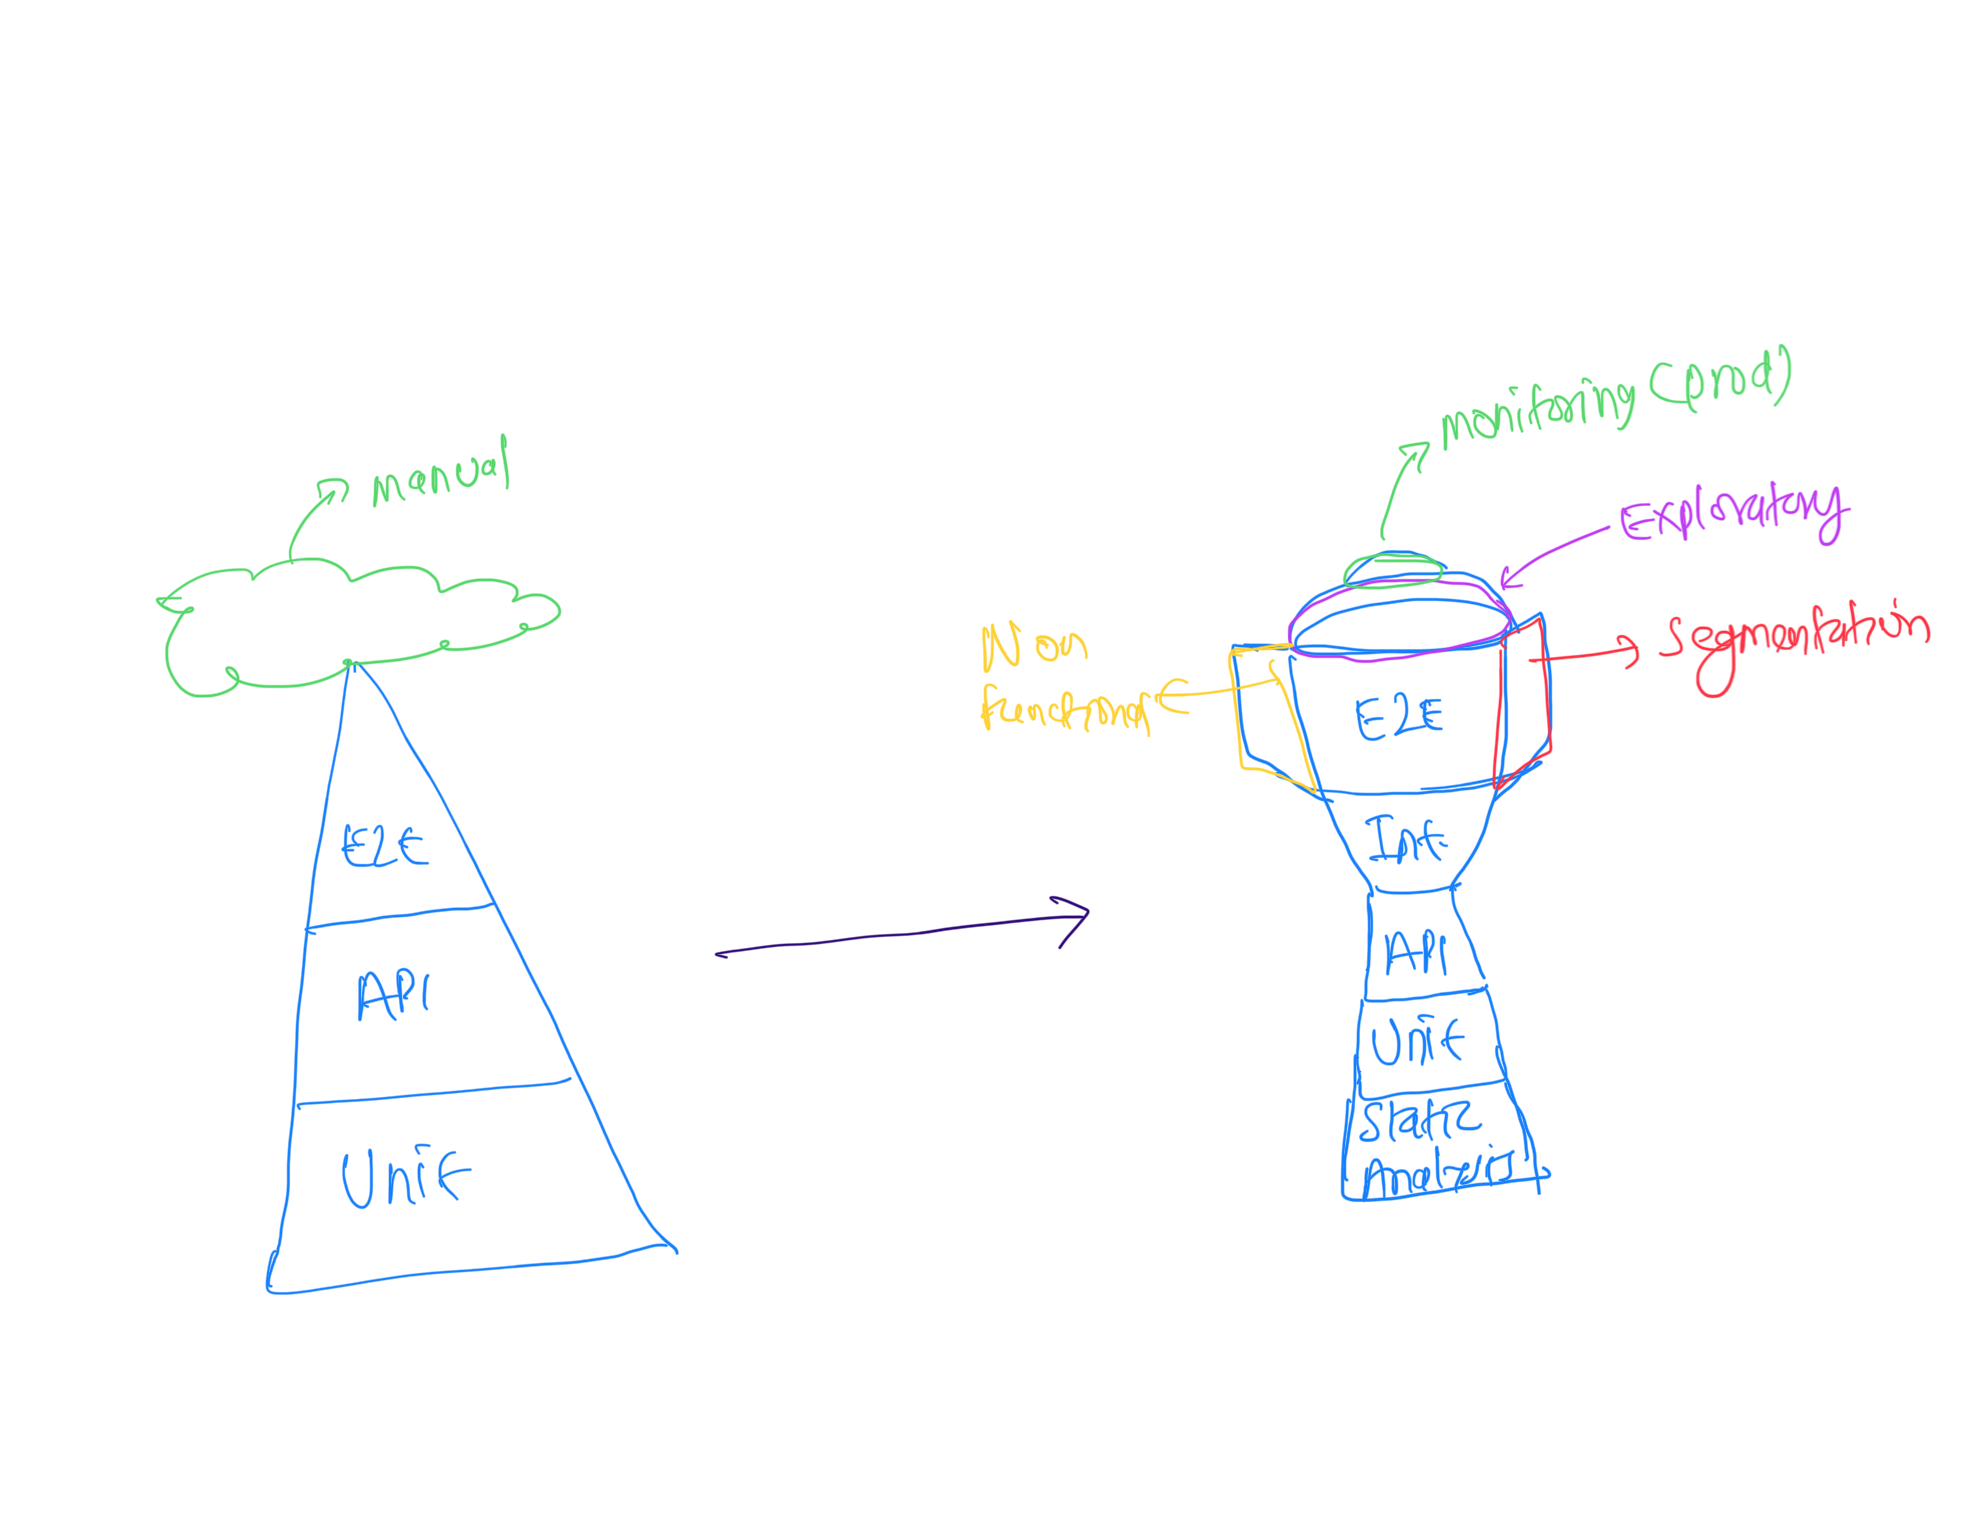 manual
E2E
API
Unit
monitoring (prod)
Exploratory
Segmentation
Non
functional
E2E
Int
API
Unit
Static
Analysis